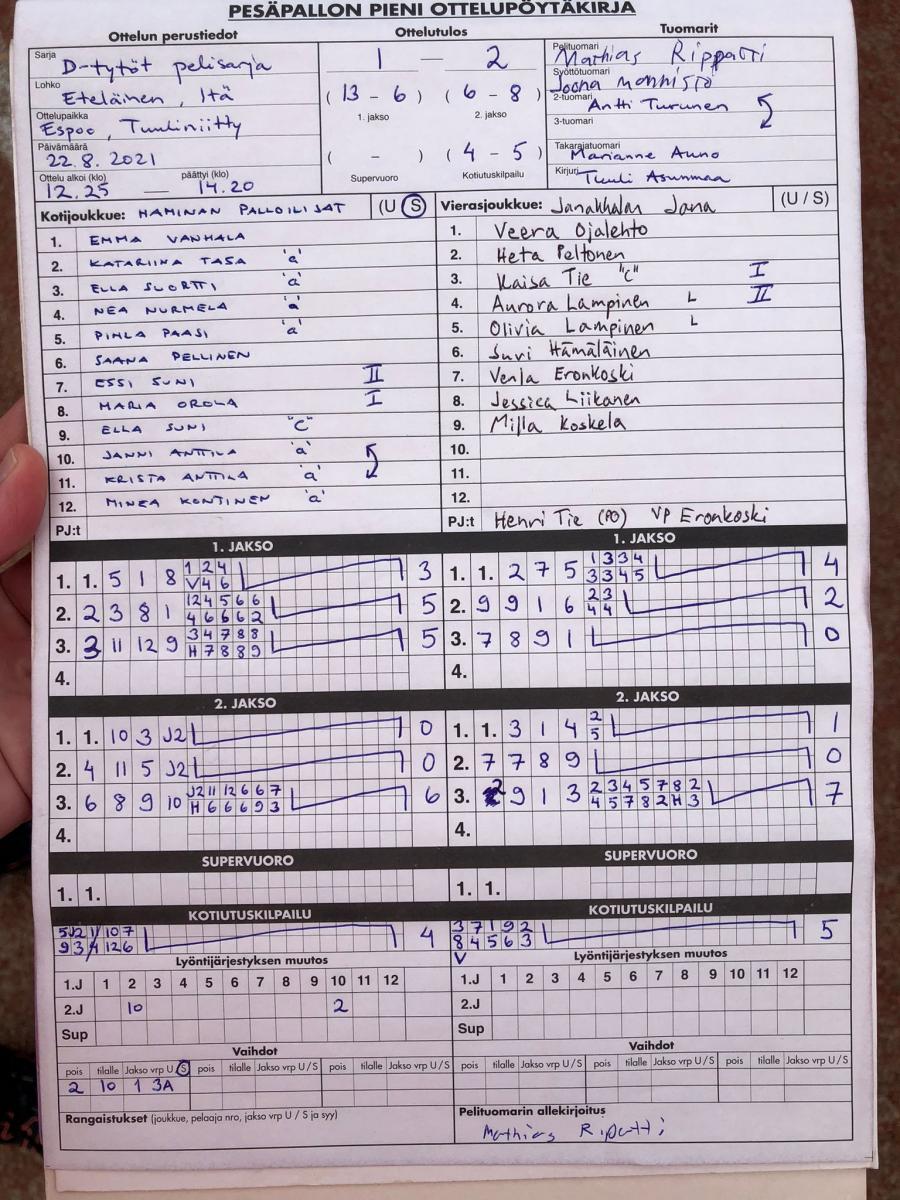 PESÄPALLON PIENI OTTELUPÖYTÄKIRJA
Ottelun perustiedot
Sarja
D-tytöt pelisarja
Lohko
Eteläinen, Itä
Ottelupaikka
Espoo, Tuuliniitty
Päivämäärä
22.8.2021
Ottelu alkoi (klo) päättyi (klo)
12.25 — 14.20
Ottelutulos
1 — 2
(13 - 6) (6 - 8)
1. jakso 2. jakso
( - ) (4 - 5)
Supervuoro Kotiutuskilpailu
Tuomarit
Pelituomari
Mathias Rippatti
Syöttötuomari
Joona Mannistö
2-tuomari
Antti Turunen
3-tuomari
Takarajatuomari
Marianne Auno
Kirjuri
Tuuli Asunmaa
Kotijoukkue: HAMINAN PALLOILIJAT (U S)
1. EMMA VANHALA
2. KATARIINA TASA 'a'
3. ELLA SUORTTI 'a'
4. NEA NURMELA 'a'
5. PIHLA PAASI 'a'
6. SAANA PELLINEN
7. ESSI SUNI II
8. MARIA OROLA I
9. ELLA SUNI "C"
10. JANNI ANTTILA 'a'
11. KRISTA ANTTILA 'a'
12. MINEA KONTINEN 'a'
PJ:t
Vierasjoukkue: Janakkalan Jana (U / S)
1. Veera Ojalehto
2. Heta Peltonen
3. Kaisa Tie "C" I
4. Aurora Lampinen L II
5. Olivia Lampinen L
6. Suvi Hämäläinen
7. Venla Eronkoski
8. Jessica Liikanen
9. Milla Koskela
10.
11.
12.
PJ:t Henri Tie (PO) VP Eronkoski
1. JAKSO
1. 1. 5 1 8 1 2 4 3
V 4 6
2. 2 3 8 1 1 2 4 5 6 6 5
4 6 6 6 2
3. 3 11 12 9 3 4 7 8 8 5
H 7 8 8 9
4.
1. JAKSO
1. 1. 2 7 5 1 3 3 4 4
3 3 4 5
2. 9 9 1 6 2 3 2
4 4
3. 7 8 9 1 0
4.
2. JAKSO
1. 1. 10 3 J2 0
2. 4 11 5 J2 0
3. 6 8 9 10 J2 11 12 6 6 7 6
H 6 6 6 9 3
4.
2. JAKSO
1. 1. 3 1 4 2 1
5
2. 7 7 8 9 0
3. 2 9 1 3 2 3 4 5 7 8 2 7
4 5 7 8 2 H 3
4.
SUPERVUORO
1. 1.
SUPERVUORO
1. 1.
KOTIUTUSKILPAILU
5 J2 11 10 7 4
9 3 4 12 6
KOTIUTUSKILPAILU
3 7 1 9 2 5
8 4 5 6 3
V
Lyöntijärjestyksen muutos
1.J 1 2 3 4 5 6 7 8 9 10 11 12
2.J 10 2
Sup
Lyöntijärjestyksen muutos
1.J 1 2 3 4 5 6 7 8 9 10 11 12
2.J
Sup
Vaihdot
pois tilalle Jakso vrp U S pois tilalle Jakso vrp U / S pois tilalle Jakso vrp U / S
2 10 1 3A
Vaihdot
pois tilalle Jakso vrp U / S pois tilalle Jakso vrp U / S pois tilalle Jakso vrp U / S
Rangaistukset (joukkue, pelaaja nro, jakso vrp U / S ja syy)
Pelituomarin allekirjoitus
Mathias Ripatti